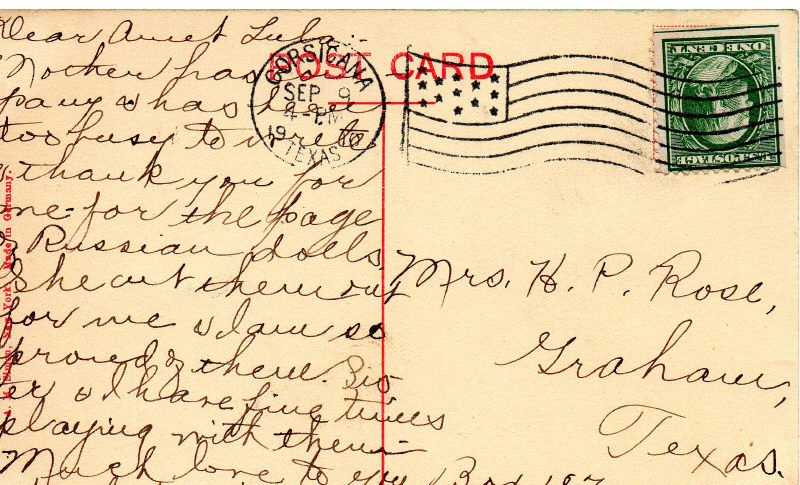 Dear Aunt Lula:-
Mother has
papa & has been
too busy to write to
& thank you for
me for the page
Russian dolls.
She cut them out
for me & I am so
proud of them. Sis-
ter & I have fine times
playing with them-
Much love to you
POST CARD
CORSICANA
SEP 9
4-PM
19 10
TEXAS
U.S. POSTAGE
ONE CENT
Mrs. H. P. Rose,
Graham,
Texas.
New York. Made in Germany.